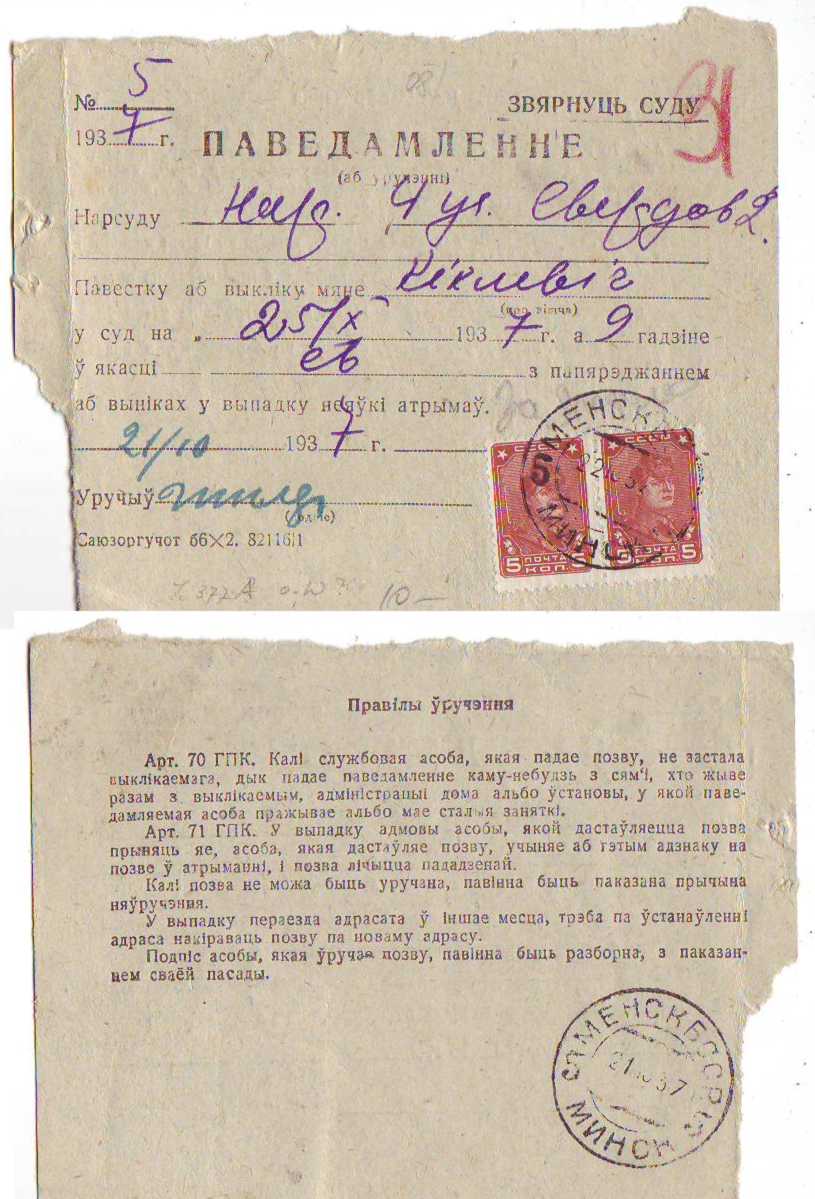 № 5
ЗВЯРНУЦЬ СУДУ
1937 г.
ПАВЕДАМЛЕННЕ
(аб уручэнні)
Нарсуду Нар. 4 уч.
Павестку аб выкліку мяне Кіклевіч
у суд на „ 25/X 1937 г. а 9 гадзіне
ў якасці св з папярэджаннем
аб выніках у выпадку неяўкі атрымаў.
21/10 1937 г.
Уручыў
(подпіс)
Саюзоргучот 66×2. 82116/1
СССР СССР
5 ПОЧТА 5 5 ПОЧТА 5
КОП. КОП.
МЕНСК
МИНСК
10—
Правілы ўручэння
Арт. 70 ГПК. Калі службовая асоба, якая падае позву, не застала
выклікаемага, дык падае паведамленне каму-небудзь з сям'і, хто жыве
разам з выклікаемым, адміністрацыі дома альбо ўстановы, у якой паве-
дамляемая асоба пражывае альбо мае сталыя заняткі.
Арт. 71 ГПК. У выпадку адмовы асобы, якой дастаўляецца позва
прыняць яе, асоба, якая дастаўляе позву, учыняе аб гэтым адзнаку на
позве ў атрыманні, і позва лічыцца пададзенай.
Калі позва не можа быць уручана, павінна быць паказана прычына
няўручэння.
У выпадку пераезда адрасата ў іншае месца, трэба па ўстанаўленні
адраса накіраваць позву па новаму адрасу.
Подпіс асобы, якая ўручае позву, павінна быць разборна, з паказан-
нем сваёй пасады.
МЕНСК БССР
21.10.37
МИНСК